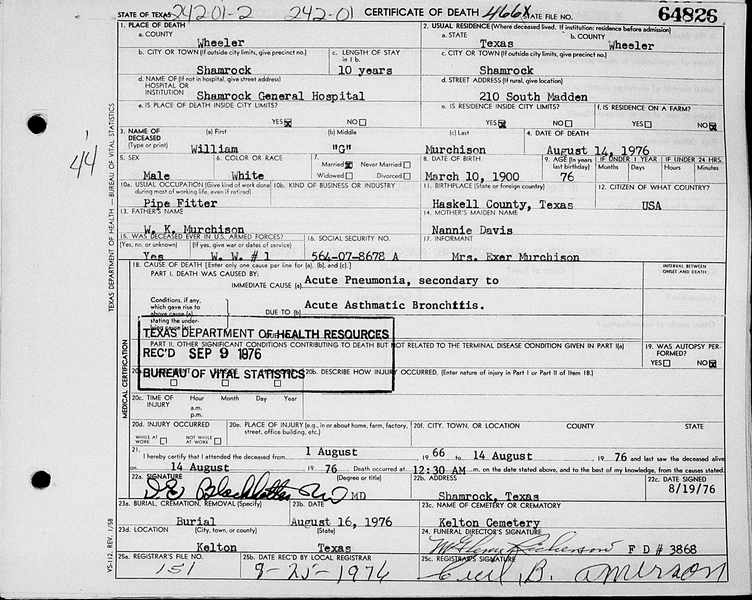 STATE OF TEXAS 24201-2 242-01 CERTIFICATE OF DEATH 466X STATE FILE NO. 64826
1. PLACE OF DEATH
a. COUNTY
Wheeler
2. USUAL RESIDENCE (Where deceased lived. If institution: residence before admission)
a. STATE b. COUNTY
Texas Wheeler
b. CITY OR TOWN (If outside city limits, give precinct no.) c. LENGTH OF STAY in 1 b.
Shamrock 10 years
c. CITY OR TOWN (If outside city limits, give precinct no.)
Shamrock
d. NAME OF (If not in hospital, give street address) HOSPITAL OR INSTITUTION
Shamrock General Hospital
d. STREET ADDRESS (If rural, give location)
210 South Madden
e. IS PLACE OF DEATH INSIDE CITY LIMITS?
YES NO
e. IS RESIDENCE INSIDE CITY LIMITS? f. IS RESIDENCE ON A FARM?
YES NO YES NO
3. NAME OF DECEASED (Type or print) (a) First (b) Middle (c) Last 4. DATE OF DEATH
William "G" Murchison August 14, 1976
5. SEX 6. COLOR OR RACE 7. Married Never Married Widowed Divorced
Male White
8. DATE OF BIRTH 9. AGE (In years last birthday) IF UNDER 1 YEAR Months Days IF UNDER 24 HRS. Hours Minutes
March 10, 1900 76
10a. USUAL OCCUPATION (Give kind of work done during most of working life, even if retired) 10b. KIND OF BUSINESS OR INDUSTRY
Pipe Fitter
11. BIRTHPLACE (State or foreign country) 12. CITIZEN OF WHAT COUNTRY?
Haskell County, Texas USA
13. FATHER'S NAME
W. K. Murchison
14. MOTHER'S MAIDEN NAME
Nannie Davis
15. WAS DECEASED EVER IN U.S. ARMED FORCES? (Yes, no, or unknown) (If yes, give war or dates of service) 16. SOCIAL SECURITY NO. 17. INFORMANT
Yes W. W. # 1 564-07-8678 A Mrs. Exer Murchison
18. CAUSE OF DEATH [Enter only one cause per line for (a), (b), and (c).] INTERVAL BETWEEN ONSET AND DEATH
PART I. DEATH WAS CAUSED BY:
IMMEDIATE CAUSE (a) Acute Pneumonia, secondary to
Conditions, if any, which gave rise to above cause (a) stating the underlying cause last
DUE TO (b) Acute Asthmatic Bronchitis.
TEXAS DEPARTMENT OF HEALTH RESOURCES
REC'D SEP 9 1976
BUREAU OF VITAL STATISTICS
PART II. OTHER SIGNIFICANT CONDITIONS CONTRIBUTING TO DEATH BUT NOT RELATED TO THE TERMINAL DISEASE CONDITION GIVEN IN PART I(a)
19. WAS AUTOPSY PERFORMED?
YES NO
20b. DESCRIBE HOW INJURY OCCURRED. (Enter nature of injury in Part I or Part II of Item 18.)
20c. TIME OF INJURY Hour Month Day Year
a.m.
p.m.
20d. INJURY OCCURRED
WHILE AT WORK NOT WHILE AT WORK
20e. PLACE OF INJURY (e.g., in or about home, farm, factory, street, office building, etc.)
20f. CITY, TOWN, OR LOCATION COUNTY STATE
21. I hereby certify that I attended the deceased from 1 August 1966 to 14 August 1976 and last saw the deceased alive
on 14 August 1976 Death occurred at 12:30 AM m. on the date stated above, and to the best of my knowledge, from the causes stated.
22a. SIGNATURE (Degree or title) 22b. ADDRESS 22c. DATE SIGNED
MD Shamrock, Texas 8/19/76
23a. BURIAL, CREMATION, REMOVAL (Specify) 23b. DATE 23c. NAME OF CEMETERY OR CREMATORY
Burial August 16, 1976 Kelton Cemetery
23d. LOCATION (City, town, or county) (State)
Kelton Texas
24. FUNERAL DIRECTOR'S SIGNATURE
F D # 3868
25a. REGISTRAR'S FILE NO. 25b. DATE REC'D BY LOCAL REGISTRAR 25c. REGISTRAR'S SIGNATURE
151 8-25-1976 Cecil B.
44
TEXAS DEPARTMENT OF HEALTH — BUREAU OF VITAL STATISTICS
MEDICAL CERTIFICATION
VS-112, REV. 1/58